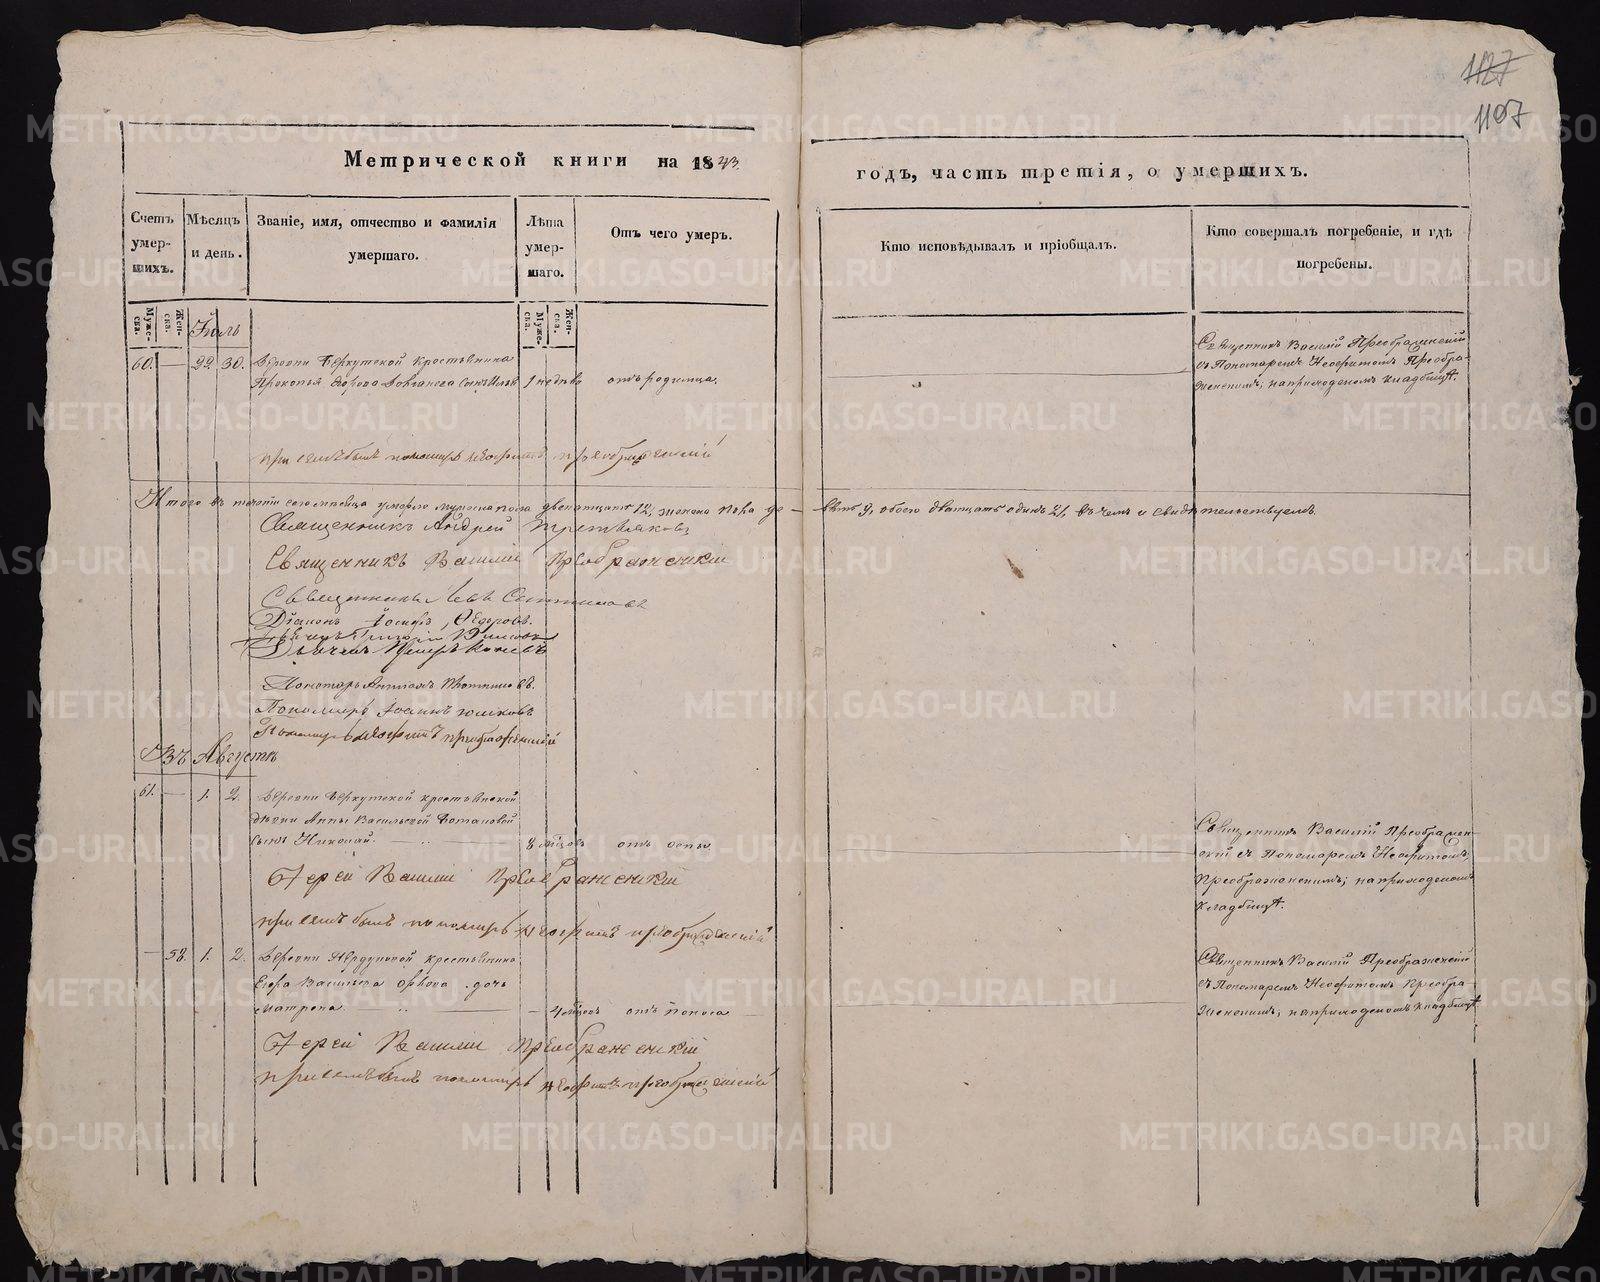 1127
1107
Метрической книги на 1843.
годъ, часть третія, о умершихъ.
Счетъ умер-шихъ.
Мѣсяцъ и день.
Званіе, имя, отчество и фамилія умершаго.
Лѣта умер-шаго.
Отъ чего умеръ.
Кто исповѣдывалъ и пріобщалъ.
Кто совершалъ погребеніе, и гдѣ погребены.
Муже-ска.
Жен-ска.
Муже-ска.
Жен-ска.
Іюль
60. — 29. 30. Деревни Беркутской крестьянина
Прокопья сынъ 1 недѣль отъ родимца.
Священникъ Василій Преображенскій
съ Пономаремъ Неофитомъ Преобра-
женскимъ; на приходскомъ кладбищѣ.
при семъ былъ пономарь Неофитъ Преображенскій
Итого въ теченіи сего мѣсяца умерло мужеска пола двенатцать 12, женска пола де-
вять 9, обоего дватцать одинъ 21, въ чемъ и свидѣтельствуемъ.
Священникъ Андрей Третьяковъ
Священникъ Василій Преображенскій
Священникъ Левъ
Діаконъ Іосифъ Ѳедоровъ.
Дьячекъ
Дьячекъ Петръ
Пономарь Плотниковъ.
Пономарь Іоаннъ
Пономарь Неофитъ Преображенскій
Въ Августѣ
61. — 1. 2. Деревни Беркутской крестьянской
дѣвки Анны Васильевой Потаповой
сынъ Николай. 8 мѣсяцовъ отъ оспы
Священникъ Василій Преображен-
скій съ Пономаремъ Неофитомъ
Преображенскимъ; на приходскомъ
кладбищѣ.
Іерей Василій Преображенскій
при семъ былъ пономарь Неофитъ Преображенскій
— 58. 1. 2. Деревни крестьянина
Егора Васильева дочь
Матрона. — 4 мѣсяцовъ отъ поноса
Священникъ Василій Преображенскій
съ Пономаремъ Неофитомъ Преобра-
женскимъ; на приходскомъ кладбищѣ
Іерей Василій Преображенскій
при семъ былъ пономарь Неофитъ Преображенскій
METRIKI.GASO-URAL.RU